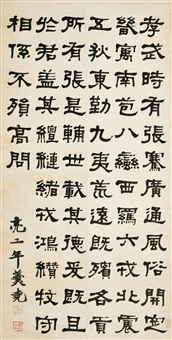 孝武時有張騫廣通風俗開定
畿寓南苞八蠻西羈六戎北震
五狄東勤九夷荒遠既殯各
所有張是輔世載其德爰既且
於君盖其纏縺緒戎鴻纘牧守
相係不殞高問
亮工年羹堯